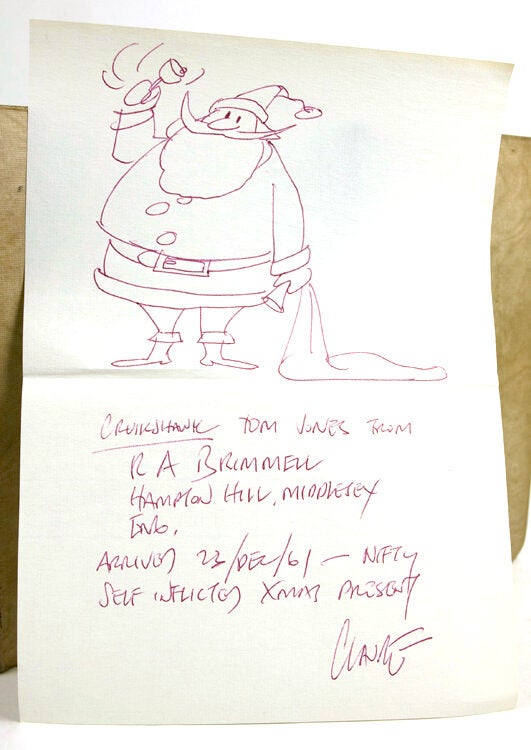 CRUIKSHANK TOM JONES FROM
R A BRIMMELL
HAMPTON HILL, MIDDLESEX
ENG.
ARRIVED 23/DEC/61 — NIFTY
SELF INFLICTED XMAS PRESENT